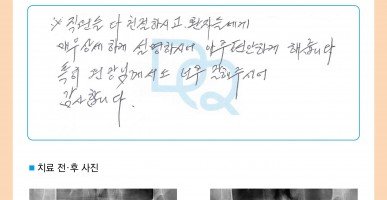 ※ 직원들 다 친절하시고 환자들에게
매우 상세하게 설명하시어 아주 편안하게 해줍니다
특히 원장님께서도 너무 잘해주시어
감사합니다.
■ 치료 전·후 사진